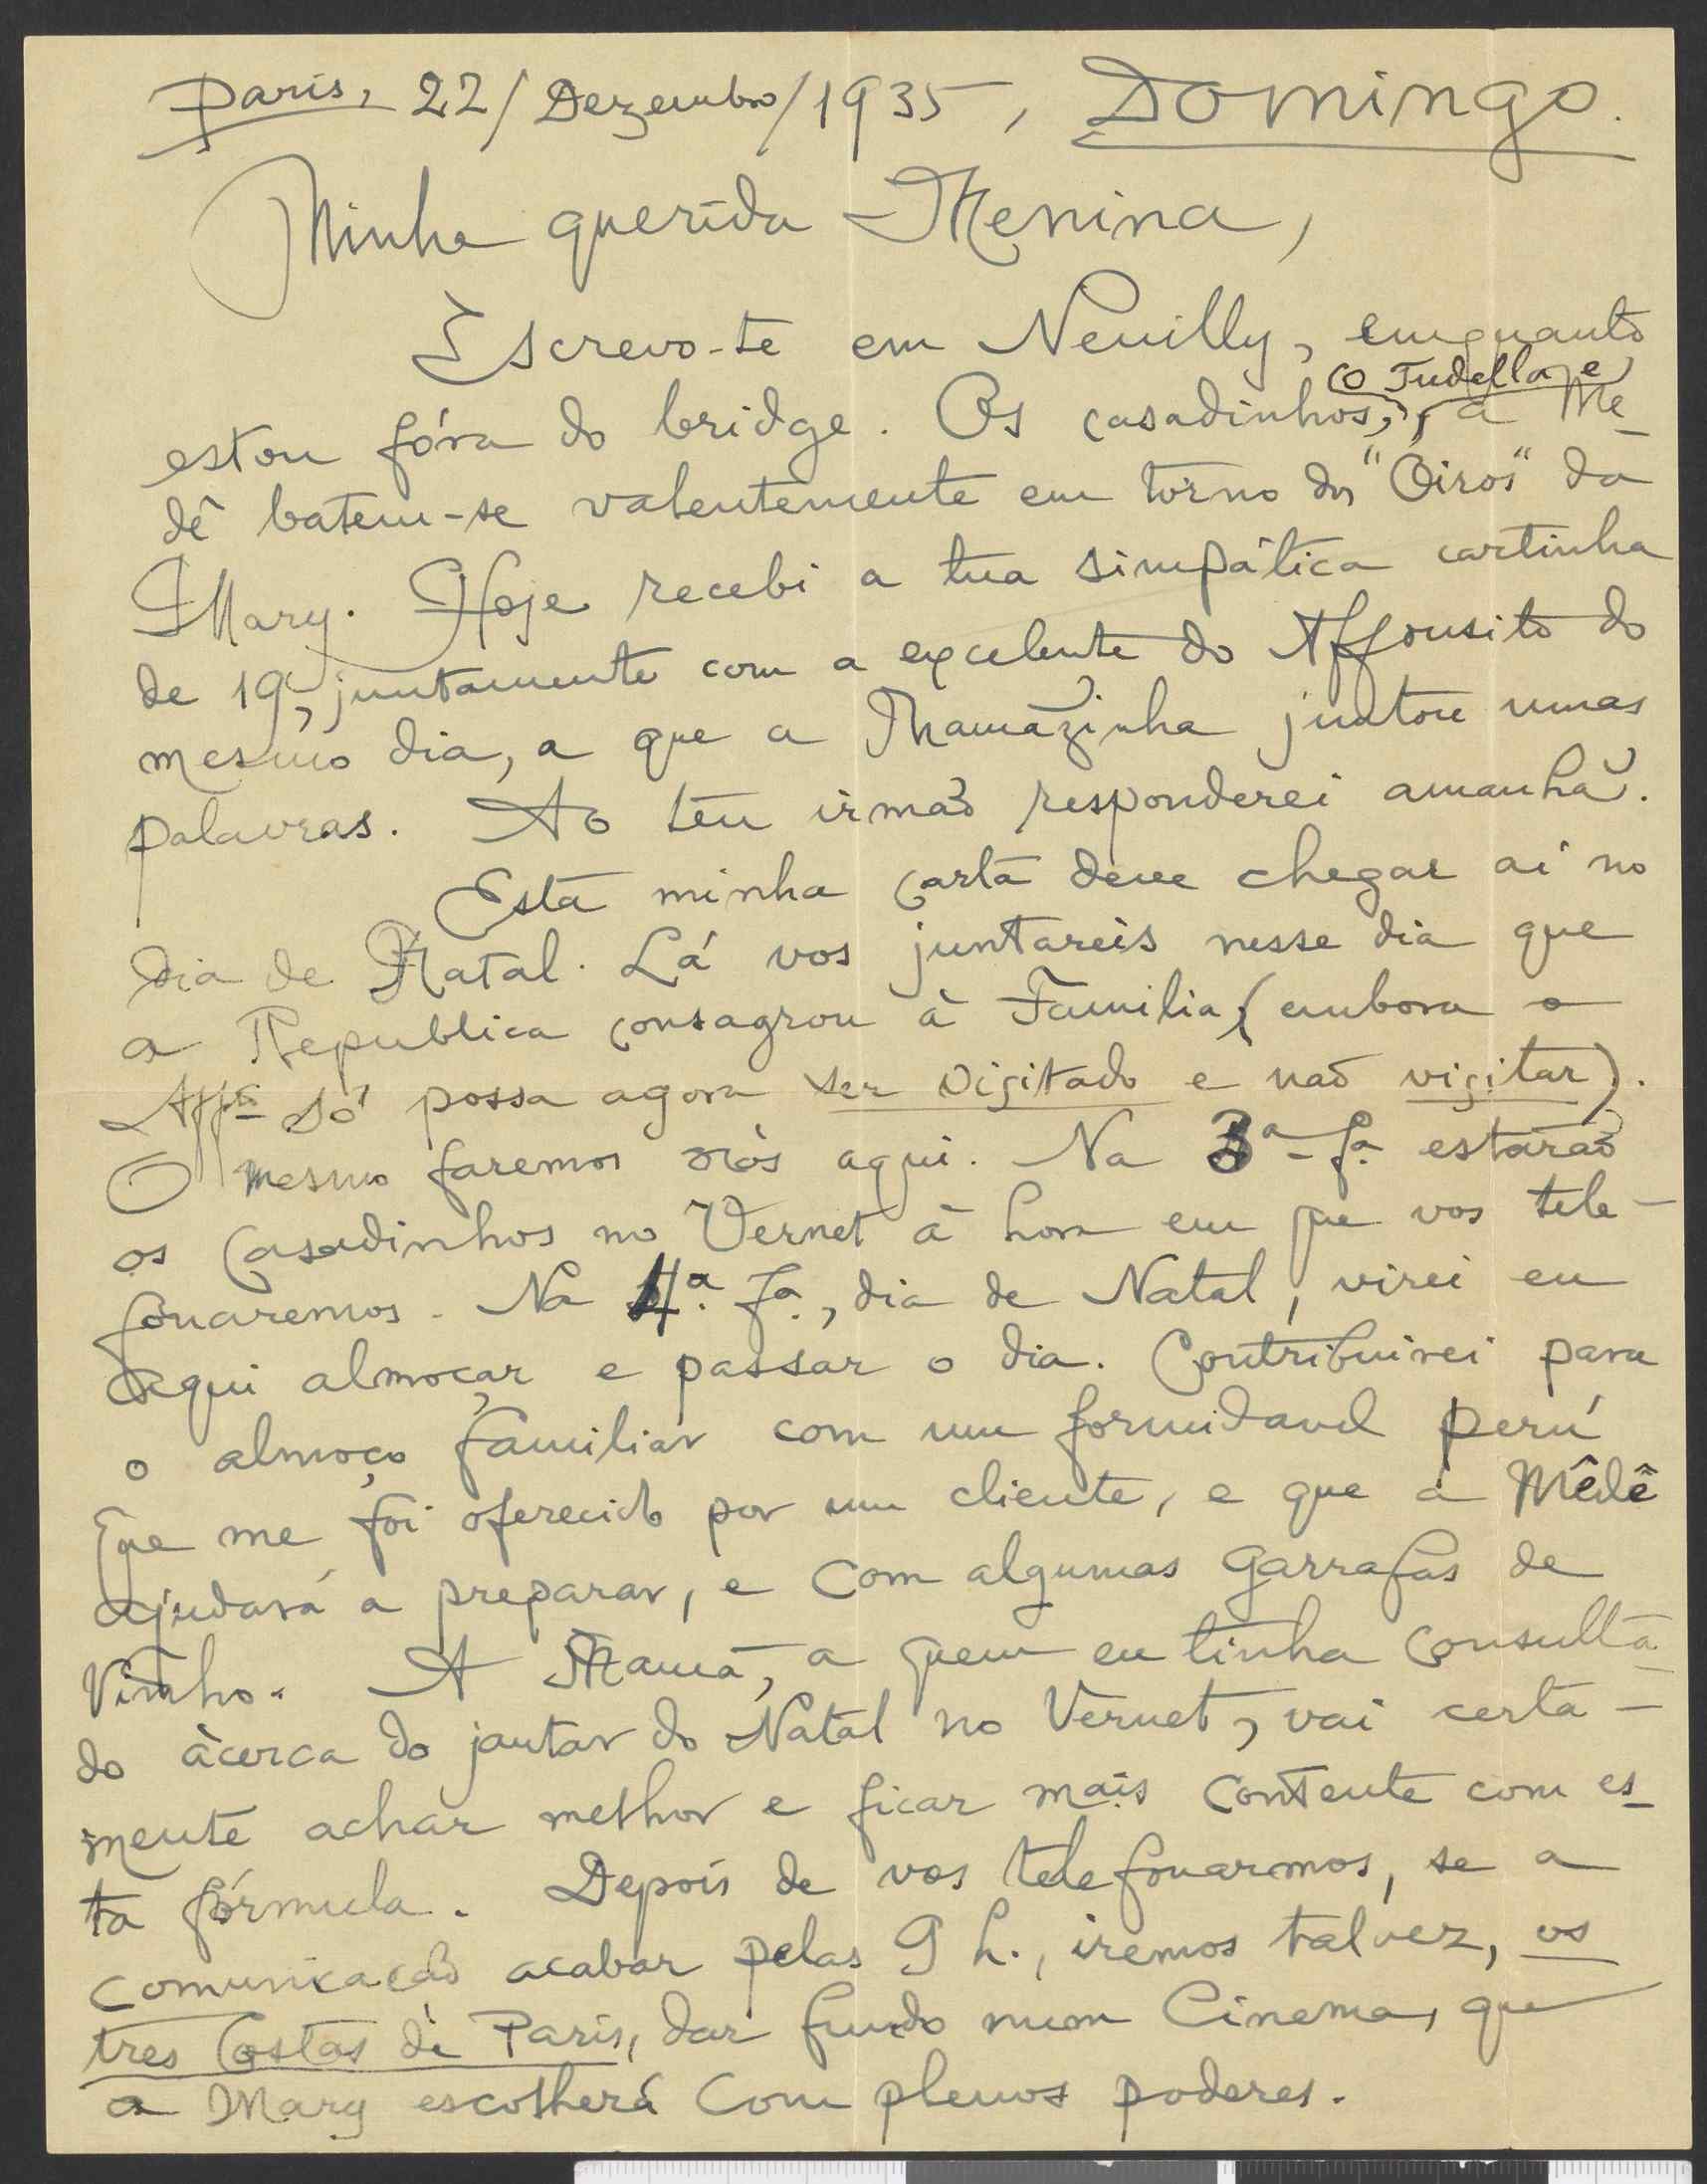 Paris, 22/Dezembro/1935, Domingo.
Minha querida Menina,
Escrevo-te em Neuilly, emquanto
estou fóra do bridge. Os casadinhos, o Tudella e a Me-
dê batem-se valentemente em tôrno dos "Oiros" da
Mary. Hoje recebi a tua simpática cartinha
de 19, juntamente com a excelente do Affonsito do
mesmo dia, a que a Mamãzinha juntou umas
palavras. Ao teu irmão responderei amanhã.
Esta minha carta deve chegar aí no
dia de Natal. Lá vos juntareis nesse dia que
a Republica consagrou à Familia (embora o
Affº só possa agora ser visitado e não visitar).
O mesmo faremos nós aqui. Na 3ª-fª estarão
os casadinhos no Vernet à hora em que vos tele-
fonaremos. Na 4ª. fª., dia de Natal, virei eu
aqui almoçar e passar o dia. Contribuirei para
o almoço familiar com um formidavel perú
que me foi oferecido por um cliente, e que a Mêdê
ajudará a preparar, e com algumas garrafas de
vinho. A Mamã, a quem eu tinha consulta-
do àcerca do jantar do Natal no Vernet, vai certa-
mente achar melhor e ficar mais contente com es-
ta fórmula. Depois de vos telefonarmos, se a
comunicação acabar pelas 9 h., iremos talvez, os
tres Costas de Paris, dar fundo num Cinema, que
a Mary escolherá com plenos poderes.